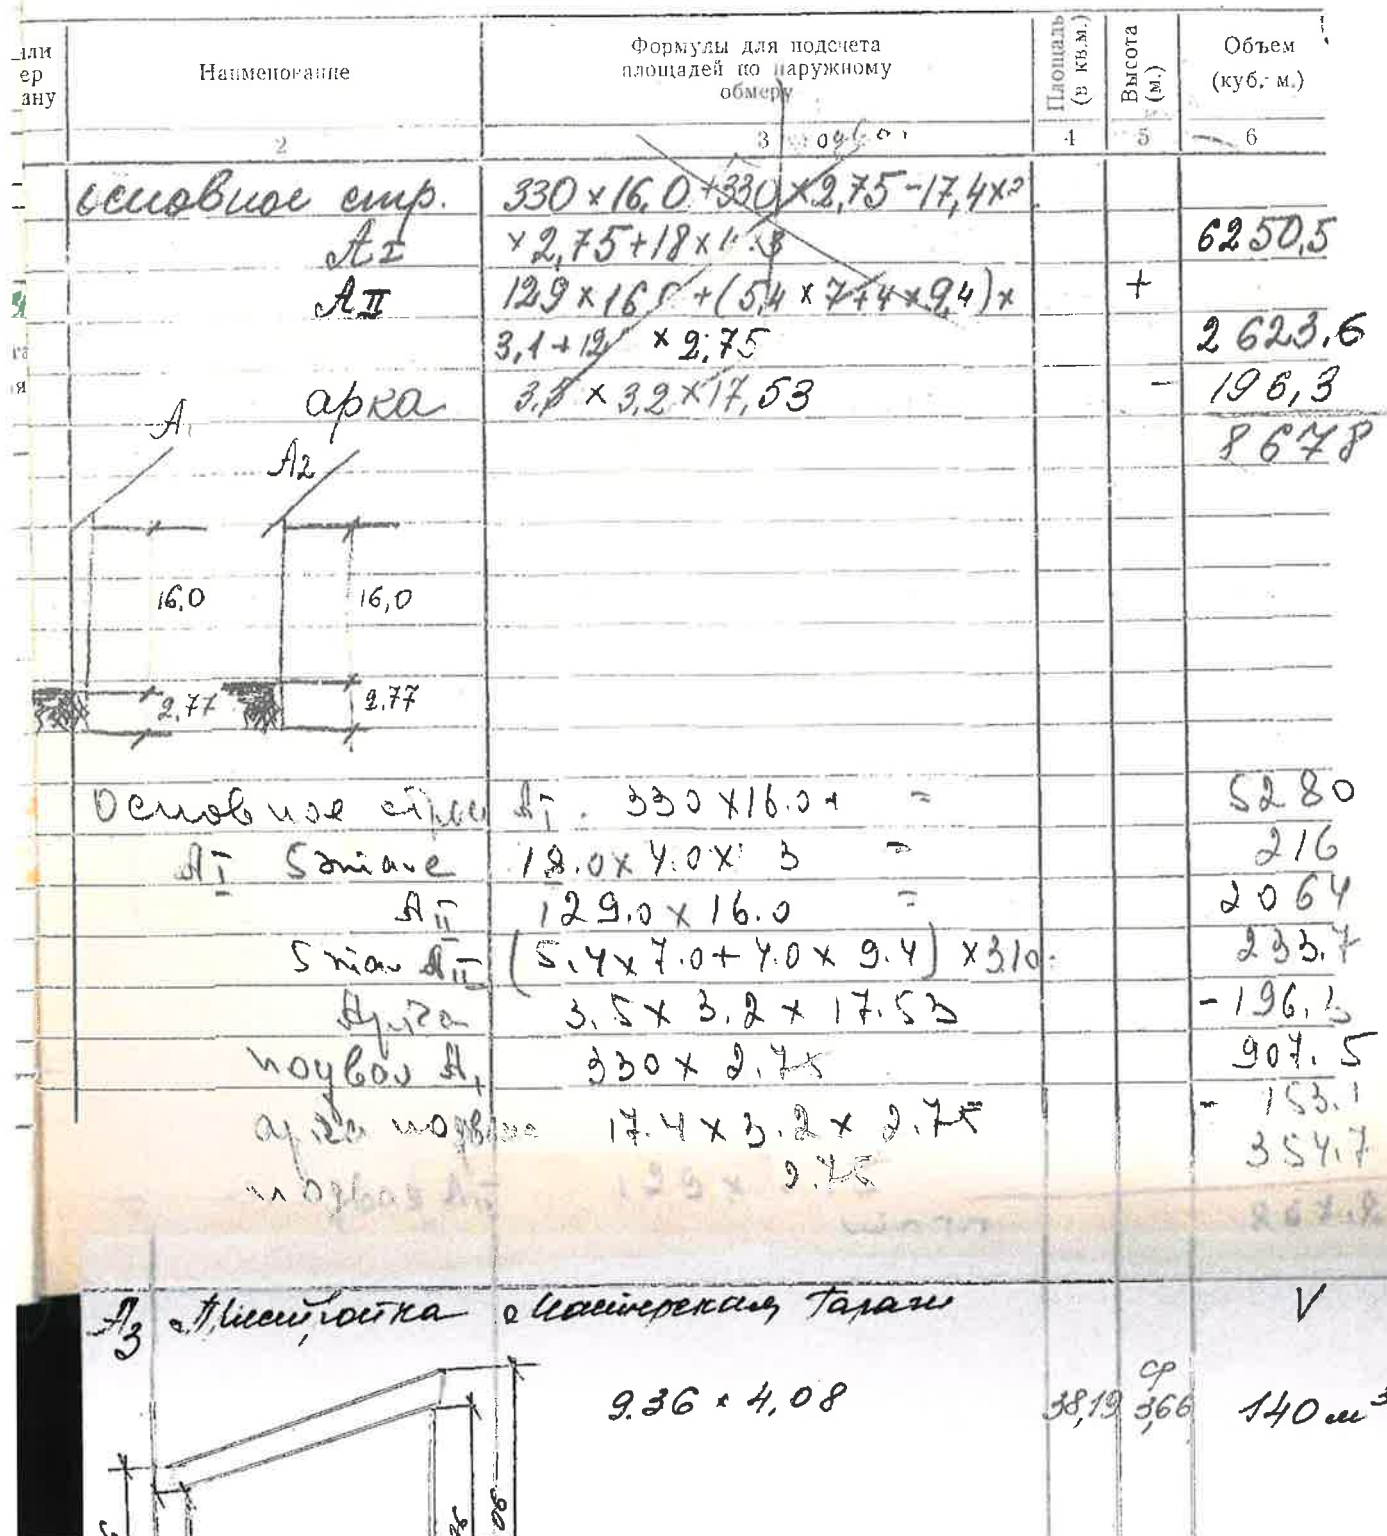 или
ер
ану
Наименование
Формулы для подсчета
площадей по наружному
обмеру
Площадь
(в кв.м.)
Высота
(м.)
Объем
(куб. м.)
2 3 4 5 6
основное стр. 330 × 16,0 + 330 × 2,75 - 17,4 ×
АI × 2,75 + 18 × 6250,5
АII 129 × 16 + (5,4 × 7 + 4 × 9,4) × +
3,1 + 12 × 2,75 2623,6
арка 3,5 × 3,2 × 17,53 - 196,3
8678
А1
А2
16,0 16,0
2,77 2,77
Основное АI 330 × 16.0 + = 5280
АI 5 этаже 18.0 × 4.0 × 3 = 216
АII 129.0 × 16.0 = 2064
5 этаж АII (5.4 × 7.0 + 4.0 × 9.4) × 3.10 233.7
Арка 3.5 × 3.2 × 17.53 - 196.3
подвал А1 330 × 2.75 907.5
арка подвала 17.4 × 3.2 × 2.75 - 153.1
2.75 354.7
подвал АII 129 ×
А3 Пристройка Мастерская Гараж V
9.36 × 4,08 38,19 ср 3,66 140 м³